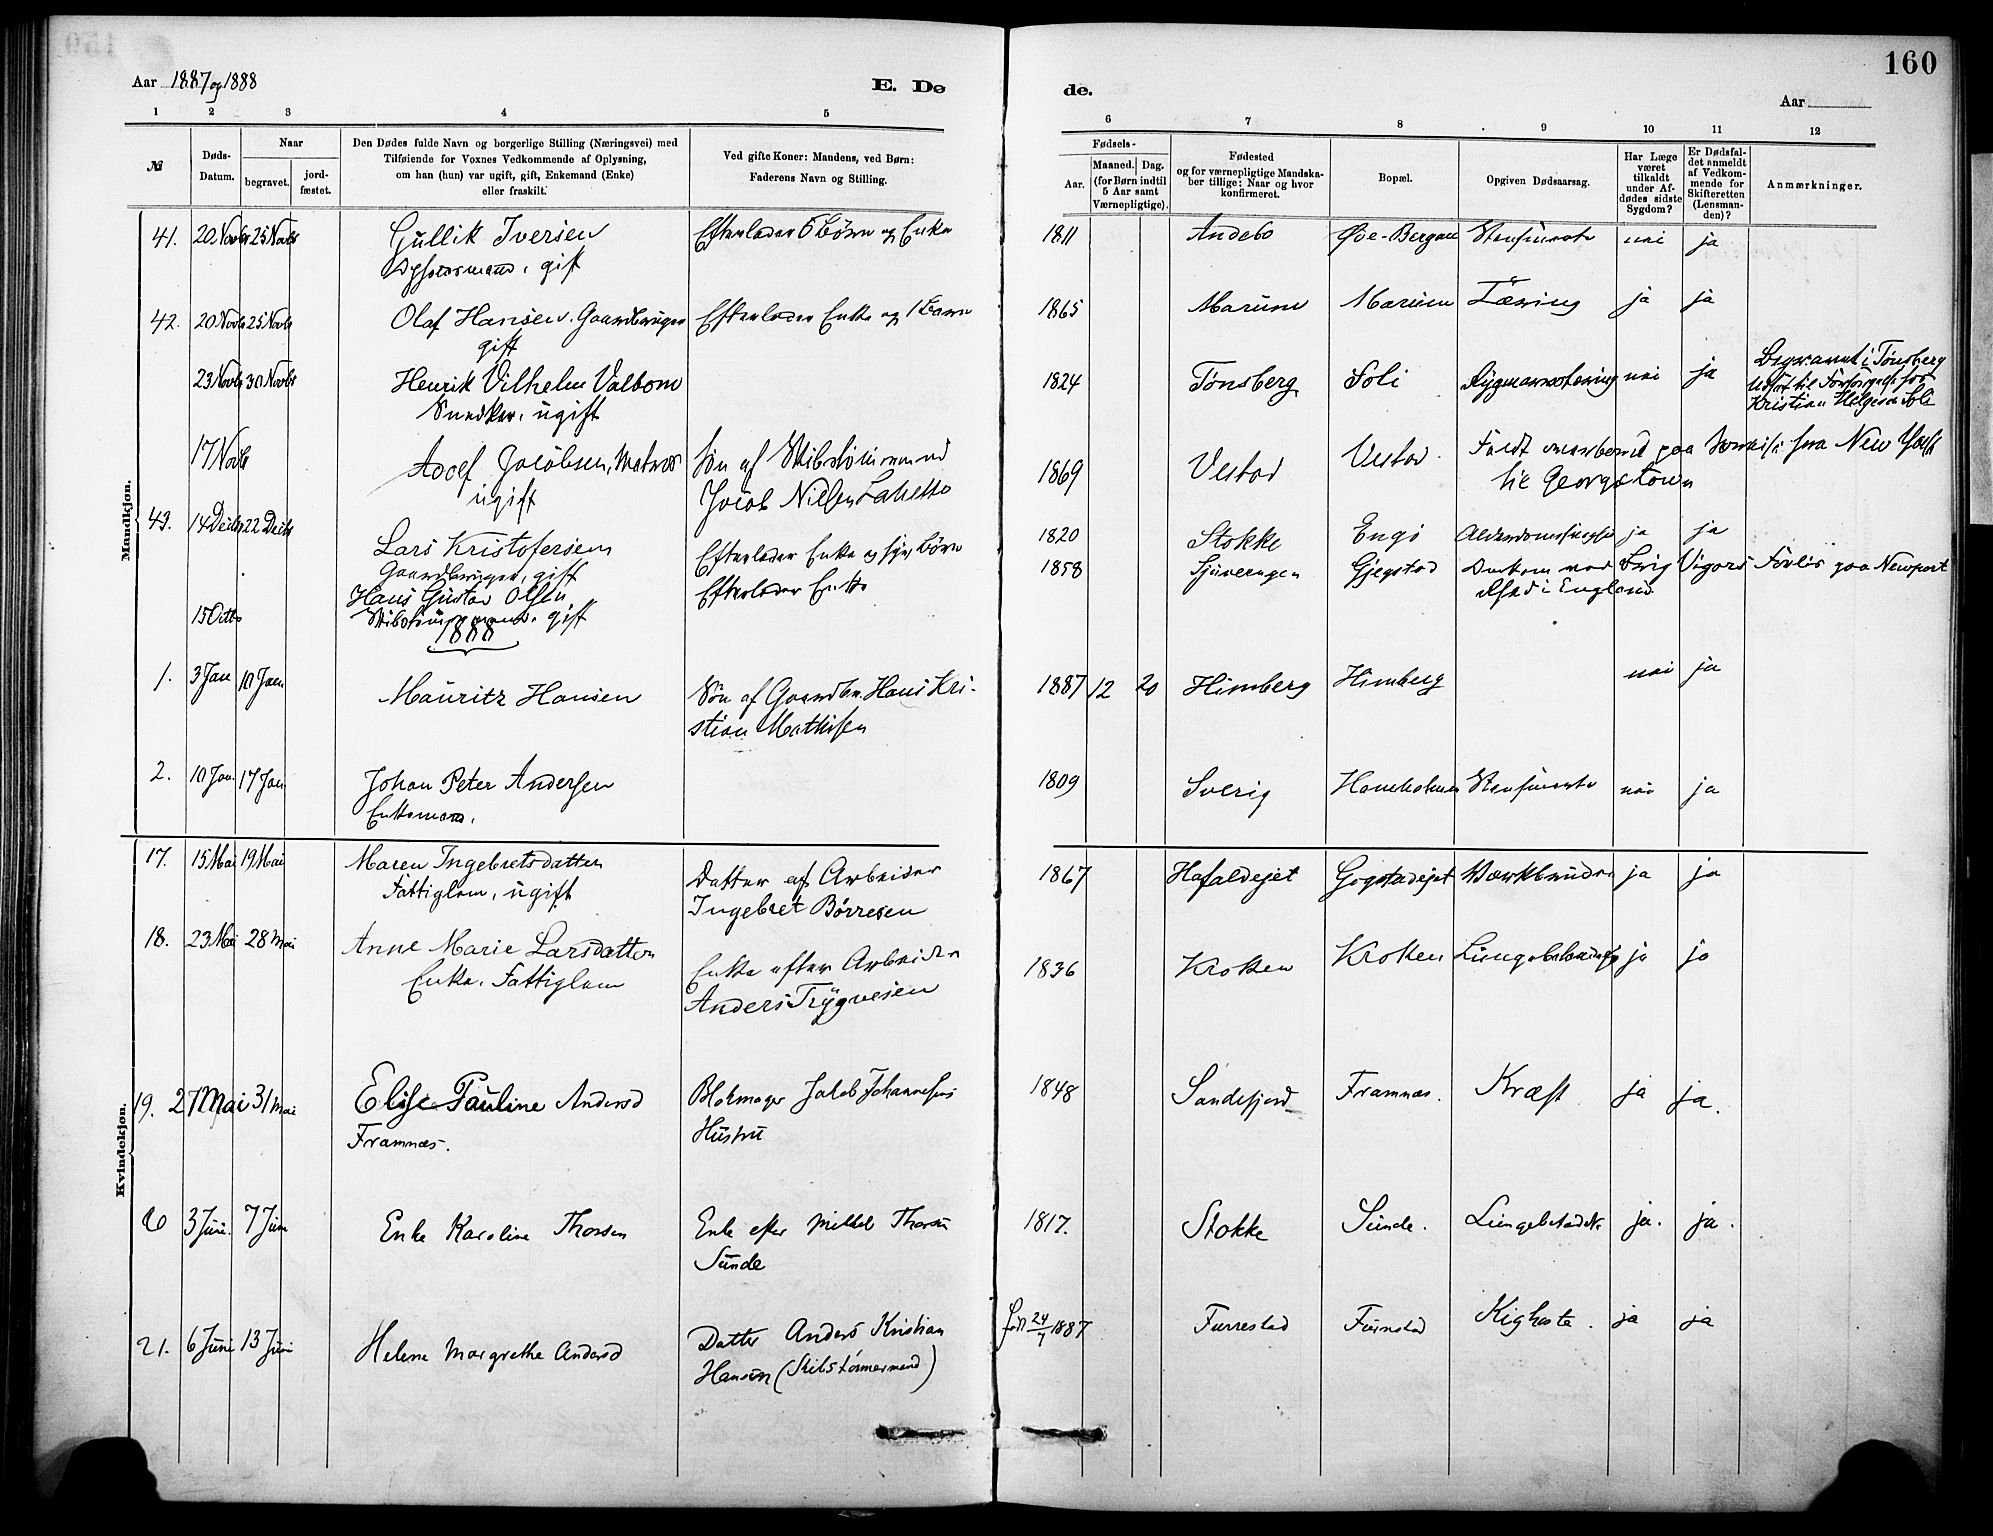 160
Aar 1887 og 1888
E. Dø
de.
Aar
1 2 3 4 5
6 7 8 9 10 11 12
№
Døds-
Datum.
Naar
begravet.
jord-
fæstet.
Den Dødes fulde Navn og borgerlige Stilling (Næringsvei) med
Tilføiende for Voxnes Vedkommende af Oplysning,
om han (hun) var ugift, gift, Enkemand (Enke)
eller fraskilt.
Ved gifte Koner: Mandens, ved Børn:
Faderens Navn og Stilling.
Fødsels-
Aar.
Maaned. Dag.
(for Børn indtil
5 Aar samt
Værnepligtige).
Fødested
og for værnepligtige Mandska-
ber tillige: Naar og hvor
konfirmeret.
Bopæl.
Opgiven Dødsaarsag.
Har Læge
været
tilkaldt
under Af-
dødes sidste
Sygdom?
Er Dødsfal-
det anmeldt
af Vedkom-
mende for
Skifteretten
(Lensman-
den)?
Anmærkninger.
Mandkjøn.
41. 20 Novbr 25 Novbr Gullik Iversen Efterlader 5 Børn og Enke 1811 Andebo Øde-Bergan nei ja
gift
42. 20 Novbr 25 Novbr Olaf Hansen. Gaardbruger Efterlader Enke og 1 Barn 1865 Marum Marum Tæring ja ja
gift
23 Novbr 30 Novbr Henrik Vilhelm Valbom 1824 Tønsberg Soli nei ja Begravet i Tønsberg
Snedker, ugift
Kristian Helgesen Soli
17 Novb Adolf Jacobsen, Matros Søn af Skibstømmermand 1869 Vestad Vestad Faldt overbord paa Reise fra New York
ugift Jacob Nielsen til Georgetown
43. 14 Decbr 22 Decbr Lars Kristofersen Efterlader Enke og Børn 1820 Stokke Engø ja ja
Gaardbruger, gift
15 Octb Hans Gustav Olsen Efterlader Enke 1858 Gjegstad Vigors Forlis paa Newport
gift i England
1888
1. 3 Jan 10 Jan Mauritz Hansen Søn af Gaardbr. Hans Kri-
stian Mathisen 1887 12 20 Himberg Himberg nei ja
2. 10 Jan. 17 Jan Johan Peter Andersen 1809 Sverig nei ja
Enkemand.
Kvindekjøn.
17. 15 Mai 19 Mai Maren Ingebretsdatter Datter af Arbeider 1867 Hafaldejet Gogstadejet ja ja
Fattiglem, ugift Ingebret Børresen
18. 23 Mai 28 Mai Anne Marie Larsdatter Enke efter Arbeider 1836 Kroken Kroken ja ja
Enke. Fattiglem Anders Trygvesen
19. 27 Mai 31 Mai Elise Pauline Andersd Blokmager Jakob Johannesens 1848 Sandefjord Framnæs. Kræft ja ja.
Framnæs. Hustru
20 3 Juni. 7 Juni Enke Karoline Thorsen Enke efter Mikkel Thorsen 1817. Stokke Sunde. ja. ja.
Sunde
21. 6 Juni 13 Juni Helene Margrethe Andersd Datter Anders Kristian født 24/7 1887 Furrestad Furustad Kighoste. ja ja
Hansen (Skibstømmermand)